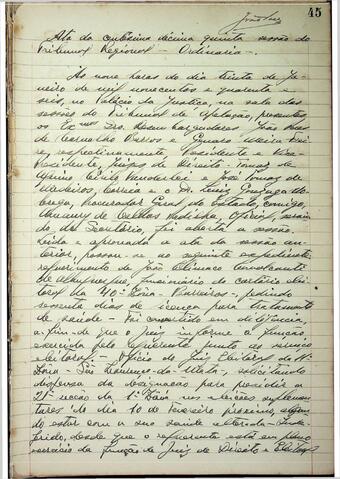 45
Ata da centésima décima quinta sessão do
Tribunal Regional — Ordinaria —.
Ás nove horas do dia trinta de Ja-
neiro de mil novecentos e quarenta e
seis, no Palacio da Justiça, na sala das
sessões do Tribunal de Apelação, presentes
os Exmos Drs. Desembargadores João Paes
de Carvalho Barros e Genaro
respectivamente, Presidente e Vice-
Presidente, Juizes de Direito — Tomaz de
Aquino Cirilo Wanderlei e José Tomaz de
Medeiros Correia e o Dr. Luiz Gonzaga
Procurador Geral do Estado, comigo,
Amaury de Oficial,
do de Secretario, foi aberta a sessão.
Lida e aprovada a ata da sessão an-
terior, passou-se ao seguinte expediente:
requerimento de João Climaco Cavalcanti
de Albuquerque, funcionario do cartorio elei-
toral da 40ª Zona — Barreiros —, pedindo
sessenta dias de licença para tratamento
de saúde — Foi convertido em diligencia,
a fim de que o juiz informe a função
exercida pelo requerente junto ao serviço
eleitoral — Oficio do Juiz Eleitoral da
Zona — São Lourenço da Mata, solicitando
dispensa da designação para presidir a
21ª secção da 1ª Zona nas eleições suplemen-
tares do dia 10 de Fevereiro proximo, alegan-
do estar com a sua saúde alterada — Inde-
ferido, desde que o requerente está em pleno
exercicio da função de Juiz de Direito e Eleitoral